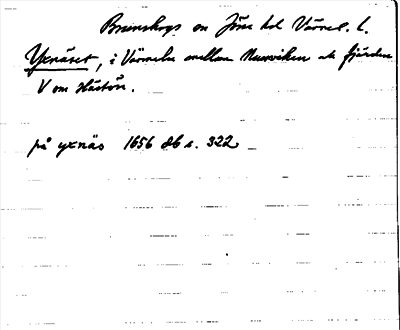 Brunskogs sn Jösse hd Värml. l.
Yxnäset, i Värmeln mellan Nussviken och fjärden
V om Hästön.
på yxnäs 1656 db s. 322